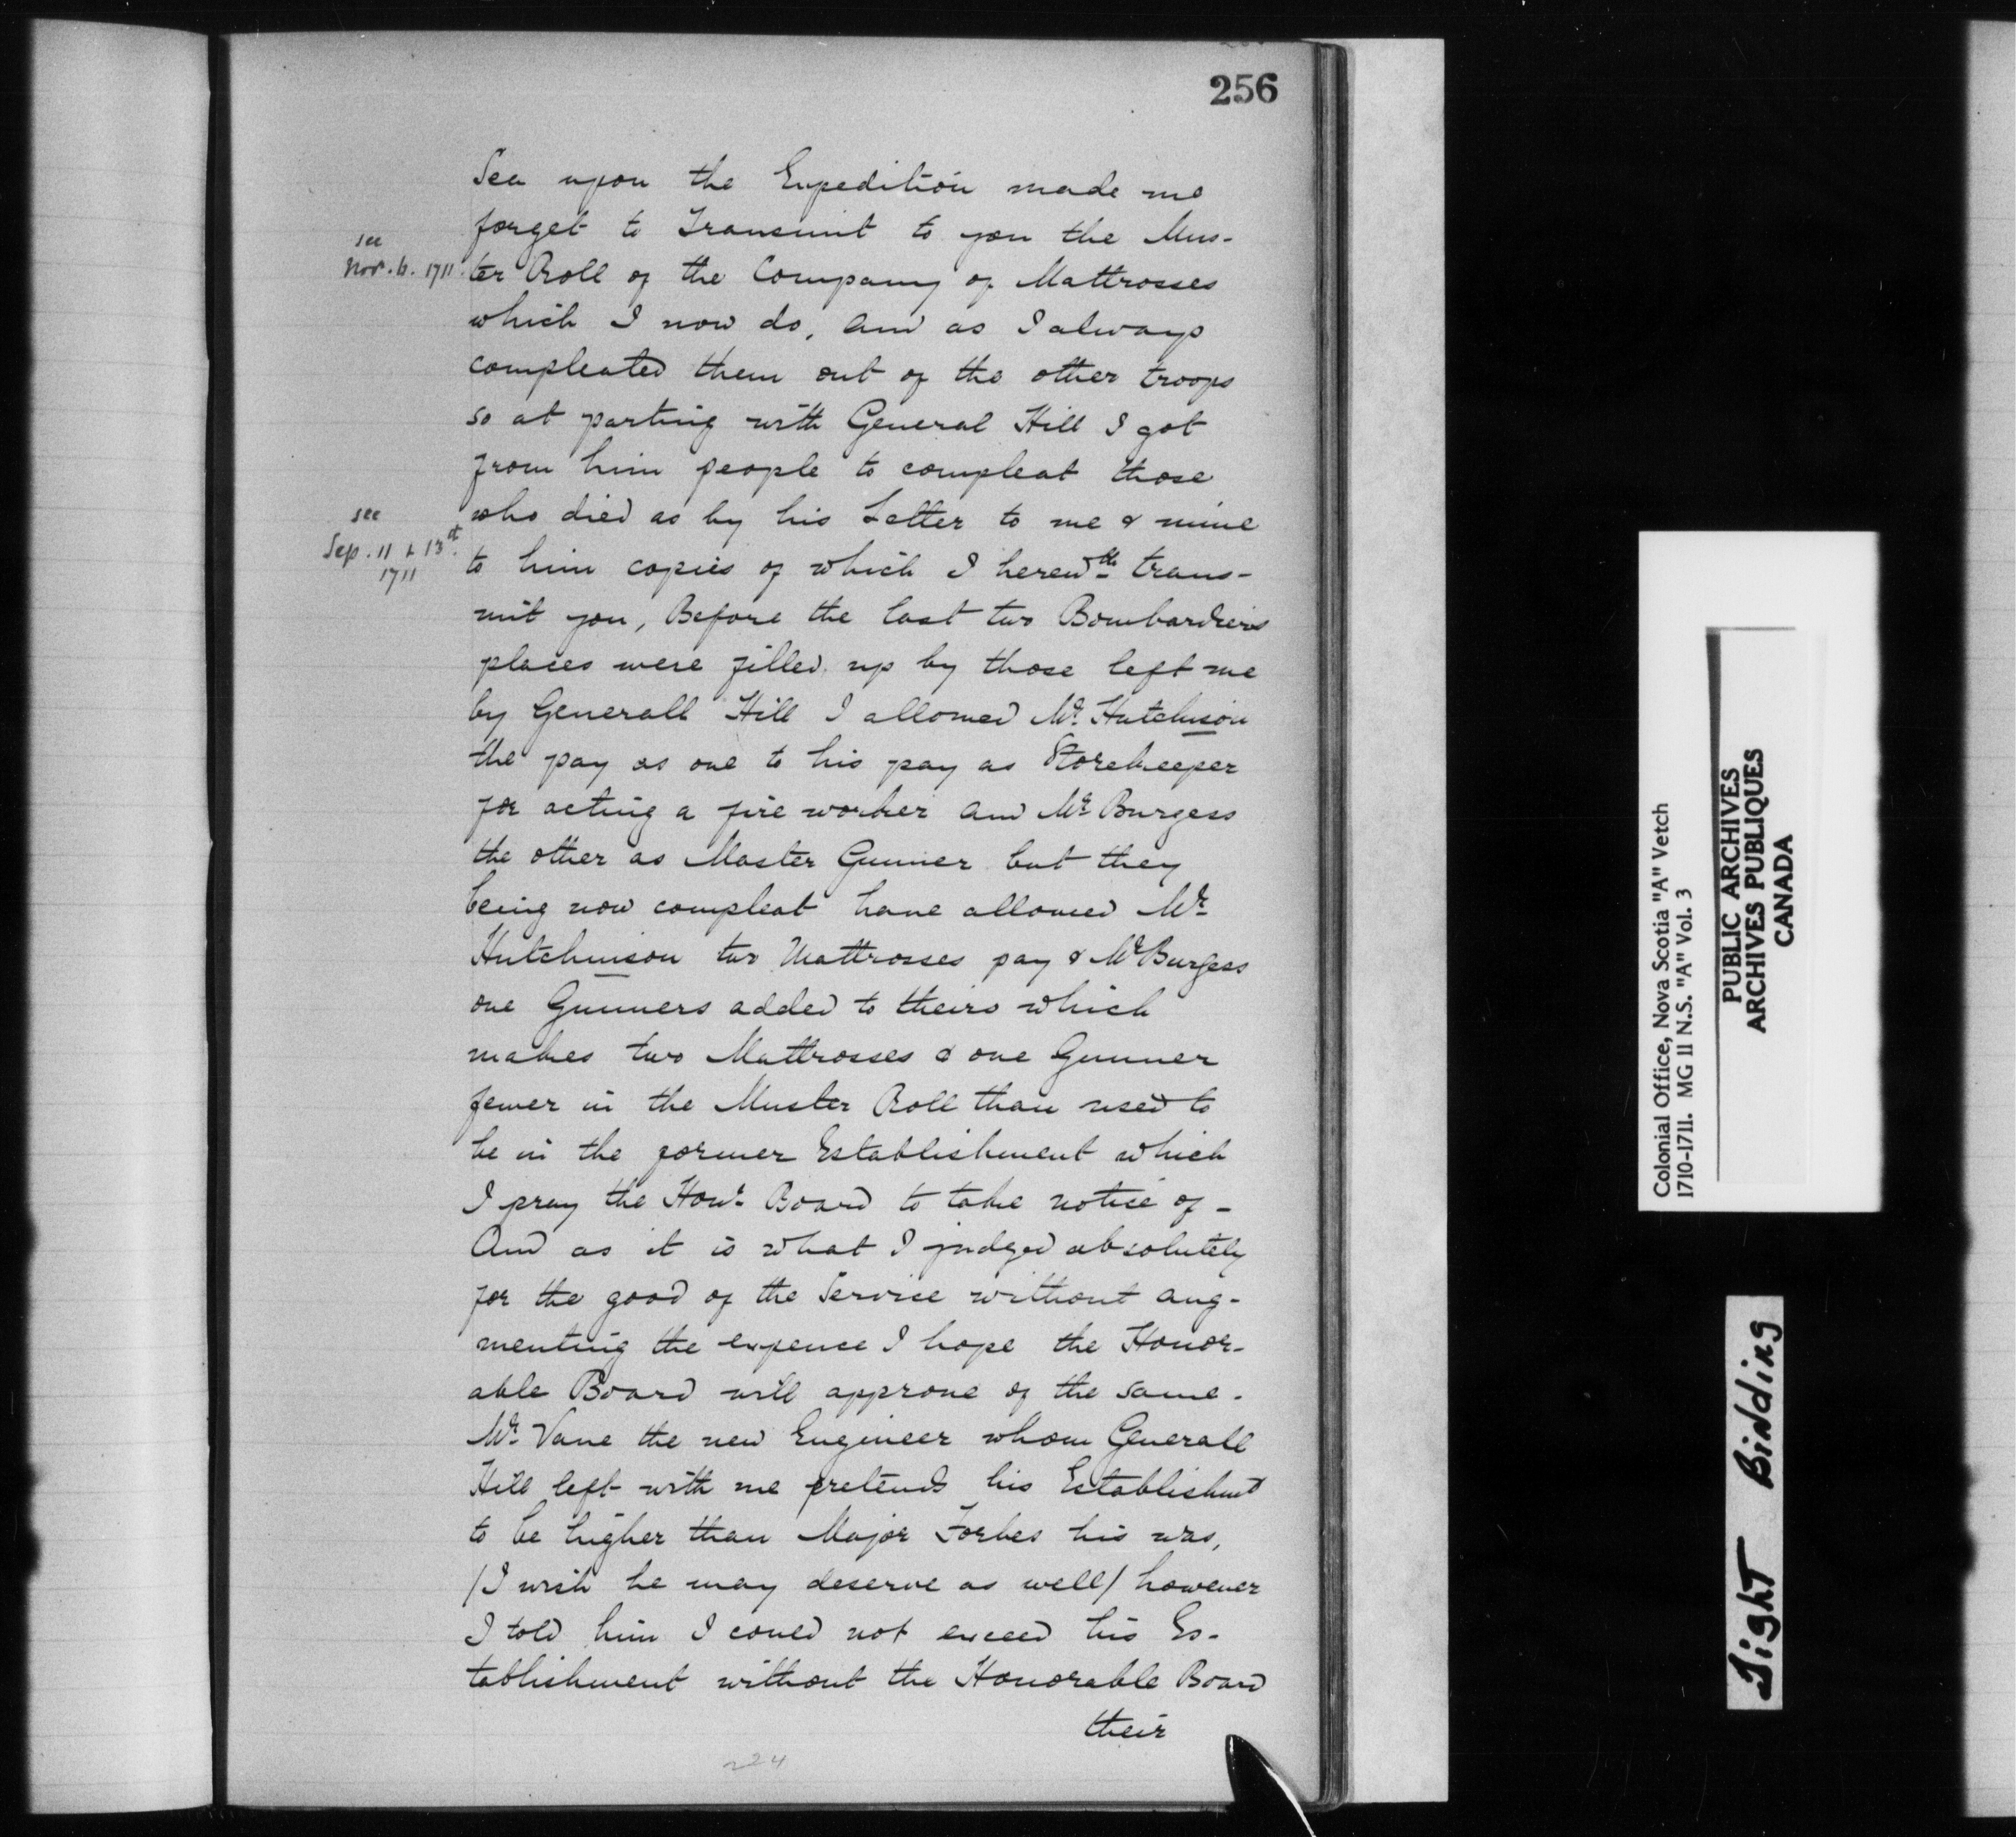 256
Sea upon the Expedition made me
forget to Transmit to you the Mus-
see
Nov. 6. 1711.
ter Roll of the Company of Mattrosses
which I now do, and as I always
compleated them out of the other troops
so at parting with General Hill I got
from him people to compleat those
see
Sep. 11 & 13th.
1711
who died as by his Letter to me & mine
to him copies of which I herewth trans-
mit you, Before the last two Bombardiers
places were filled up by those left me
by Generall Hill I allowed Mr. Hutchinson
the pay as one to his pay as Storekeeper
for acting a fire worker and Mr Burgess
the other as Master Gunner but they
being now compleat have allowed Mr
Hutchinson two Mattrosses pay & Mr Burgess
one Gunners added to theirs which
makes two Mattrosses & one Gunner
fewer in the Muster Roll than used to
be in the former Establishment which
I pray the Honr. Board to take notice of -
And as it is what I judged absolutely
for the good of the Service without aug-
menting the expence I hope the Honor-
able Board will approve of the same -
Mr. Vane the new Engineer whom Generall
Hill left with me pretends his Establishmt
to be higher than Major Forbes his was,
/I wish he may deserve as well/ however
I told him I could not exceed his Es-
tablishment without the Honorable Board
their
224
Colonial Office, Nova Scotia "A" Vetch
1710-1711. MG 11 N.S. "A" Vol. 3
PUBLIC ARCHIVES
ARCHIVES PUBLIQUES
CANADA
Tight Binding